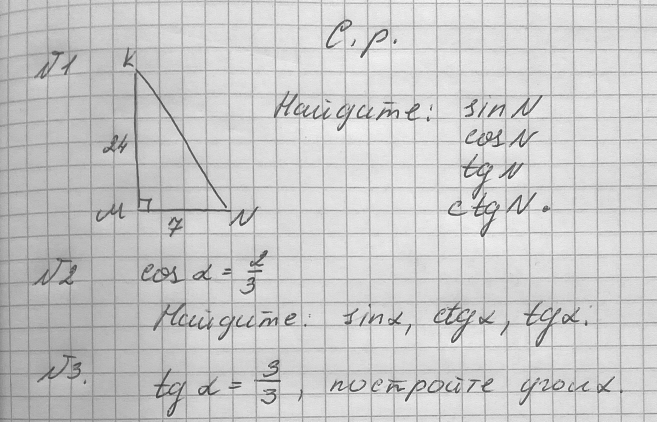 С. р.
№1
K
24
M
7
N
Найдите: sin N
cos N
tg N
ctg N.
№2 cos α = 2/3
Найдите: sin α, ctg α, tg α.
№3. tg α = 3/3, постройте угол α.